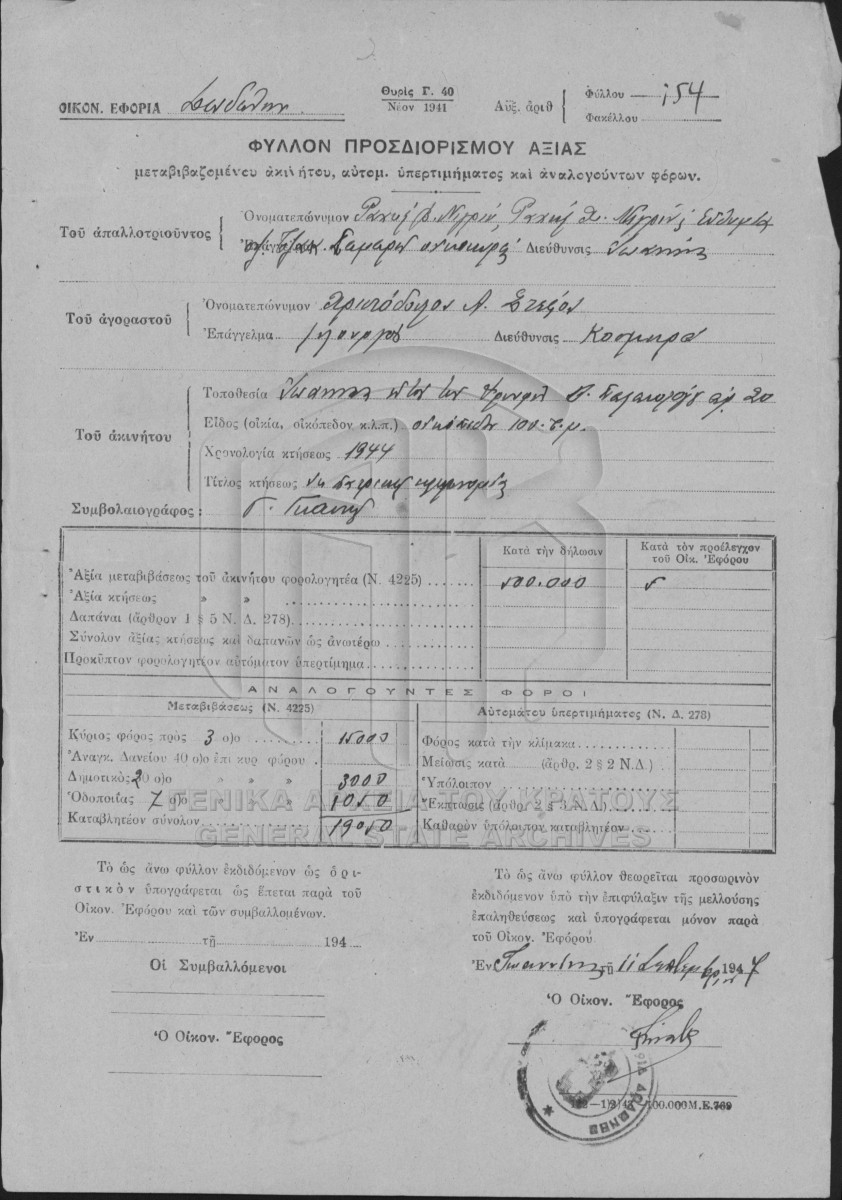 ΟΙΚΟΝ. ΕΦΟΡΙΑ Δωδώνης
Θυρίς Γ. 40
Νέον 1941
Αὔξ. ἀριθ
Φύλλου 154
Φακέλλου
ΦΥΛΛΟΝ ΠΡΟΣΔΙΟΡΙΣΜΟΥ ΑΞΙΑΣ
μεταβιβαζομένου ἀκινήτου, αὐτομ. ὑπερτιμήματος καὶ ἀναλογούντων φόρων.
Τοῦ ἀπαλλοτριοῦντος
Ὀνοματεπώνυμον
Διεύθυνσις Ἰωάννινα
Τοῦ ἀγοραστοῦ
Ὀνοματεπώνυμον Χριστόδουλος Α.
Ἐπάγγελμα γεωργός Διεύθυνσις Κοσμηρά
Τοῦ ἀκινήτου
Τοποθεσία Ἰωάννινα ἀρ. 20
Εἶδος (οἰκία, οἰκόπεδον κ.λ.π.) 100 τ.μ.
Χρονολογία κτήσεως 1944
Τίτλος κτήσεως
Συμβολαιογράφος: Γ.
Κατὰ τὴν δήλωσιν
Κατὰ τὸν προέλεγχον τοῦ Οἰκ. Ἐφόρου
Ἀξία μεταβιβάσεως τοῦ ἀκινήτου φορολογητέα (Ν. 4225) 500.000
Ἀξία κτήσεως » »
Δαπάναι (ἄρθρον 1 § 5 Ν. Δ. 278)
Σύνολον ἀξίας κτήσεως καὶ δαπανῶν ὡς ἀνωτέρω
Προκῦπτον φορολογητέον αὐτόματον ὑπερτίμημα
ΑΝΑΛΟΓΟΥΝΤΕΣ ΦΟΡΟΙ
Μεταβιβάσεως (Ν. 4225)
Αὐτομάτου ὑπερτιμήματος (Ν. Δ. 278)
Κύριος φόρος πρὸς 3 ο)ο 15000
Ἀναγκ. Δανείου 40 ο)ο ἐπὶ κυρ φόρου
Δημοτικὸς 20 ο)ο » » » 3000
Ὁδοποιΐας 7 ο)ο » » 1050
Καταβλητέον σύνολον 19050
Φόρος κατὰ τὴν κλίμακα
Μείωσις κατὰ (ἄρθρ. 2 § 2 Ν.Δ.)
Ὑπόλοιπον
Ἔκπτωσις (ἄρθρ. 2 § 3 Ν.Δ.)
Καθαρὸν ὑπόλοιπον καταβλητέον
ΓΕΝΙΚΑ ΑΡΧΕΙΑ ΤΟΥ ΚΡΑΤΟΥΣ
GENERAL STATE ARCHIVES
Τὸ ὡς ἄνω φύλλον ἐκδιδόμενον ὡς ὁρι-
στικὸν ὑπογράφεται ὡς ἕπεται παρὰ τοῦ
Οἰκον. Ἐφόρου καὶ τῶν συμβαλλομένων.
Ἐν τῇ 194
Οἱ Συμβαλλόμενοι
Ὁ Οἰκον. Ἔφορος
Τὸ ὡς ἄνω φύλλον θεωρεῖται προσωρινὸν
ἐκδιδόμενον ὑπὸ τὴν ἐπιφύλαξιν τῆς μελλούσης
ἐπαληθεύσεως καὶ ὑπογράφεται μόνον παρὰ
τοῦ Οἰκον. Ἐφόρου
Ἐν Ἰωαννίνοις τῇ 11 Σεπτεμβρίου 1947
Ὁ Οἰκον. Ἔφορος
100.000 Μ.Ε.769